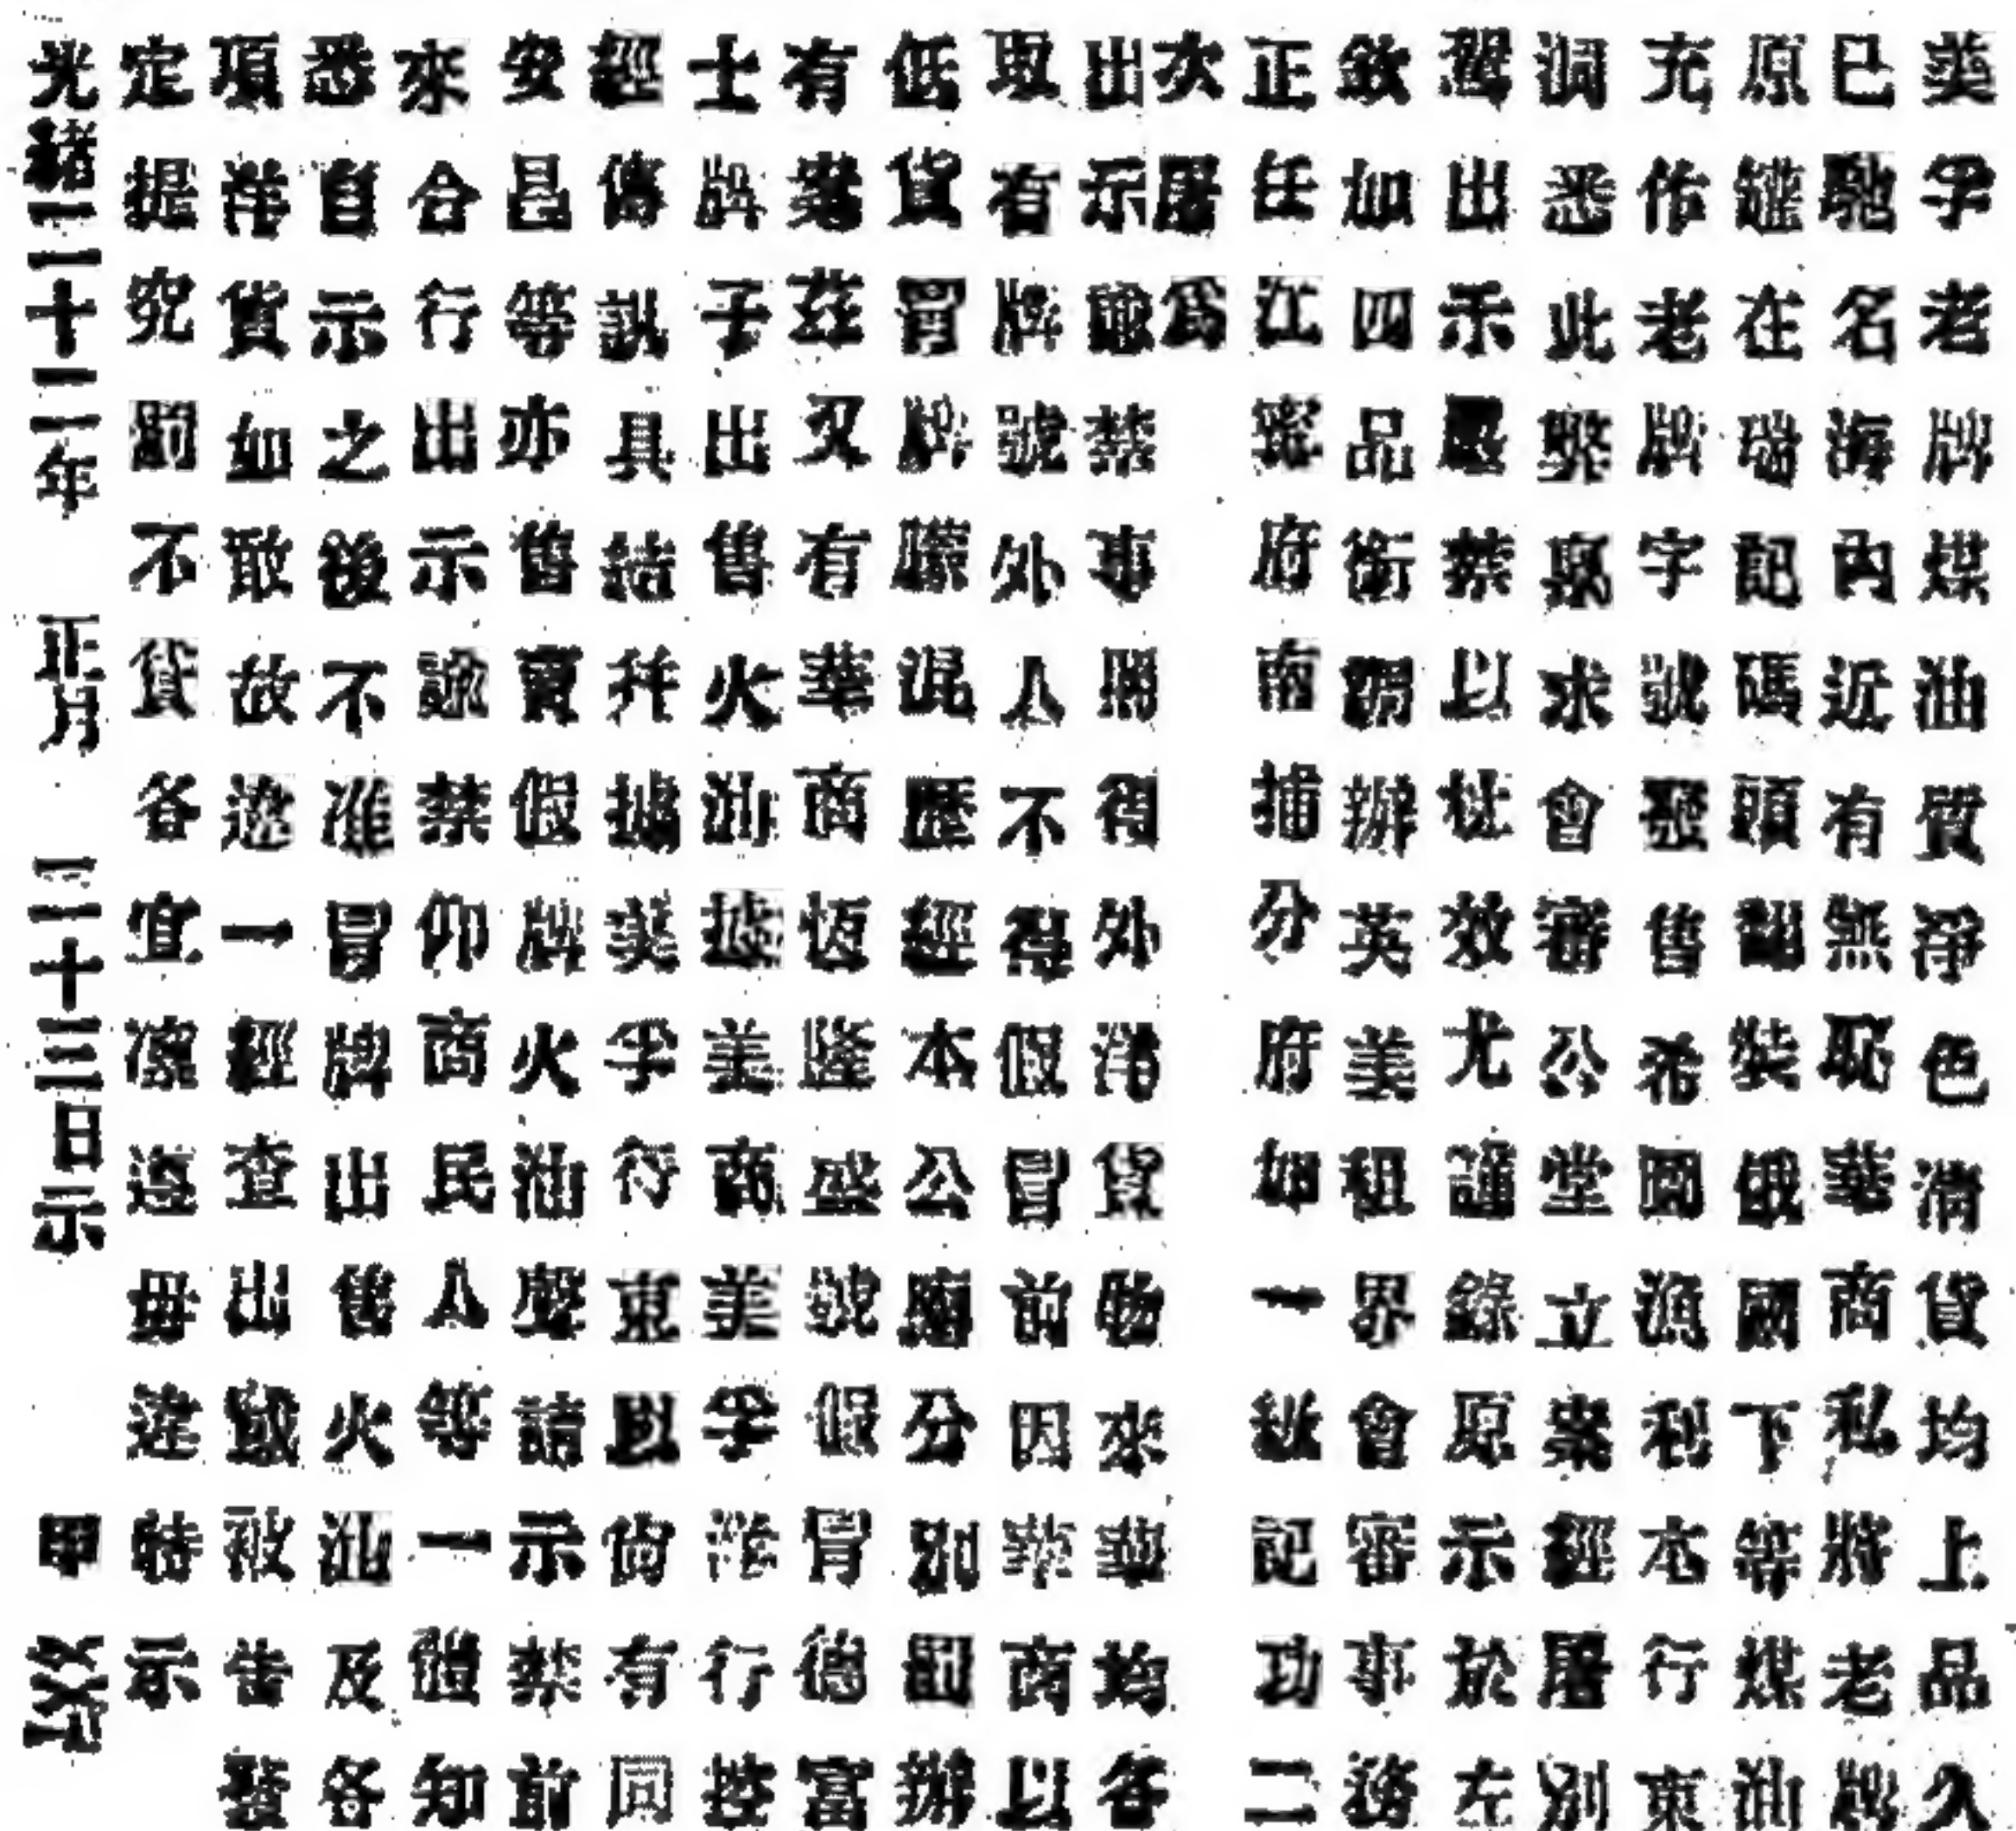 美孚老牌煤油質淨色清貨均上品久
已馳名海內近有無恥華商私將老牌
原罐在瑞記碼頭翻裝俄國下等煤油
充作老牌字號發售希圖漁利本行東
洞悉此弊稟求會審公堂立案經屠別
駕出示嚴禁以杜效尤謹錄原示於左
欽加四品銜辦英美租界會審事務
正任江蘇府南捕分府如一級記功二
次屠為
出示諭禁事照得外洋貨物來華均各
取有牌號外人不得假冒前因華商以
低貨冒牌朦混歷經本公廨分別罰辦
有案茲又有華商恆隆盛號假冒德富
士牌子出售火油據美商美孚洋行控
經傳訊具結并據美孚行東以尚有同
安昌等亦售賣假牌火油聲請示禁前
來合行出示諭禁仰商民人等一體知
悉自示之後不准冒牌出售火油及各
項洋貨如敢故違一經查出或被告發
定提究罰不貸各宜凜遵毋違特示
光緒二十二年 正月 二十三日示
甲